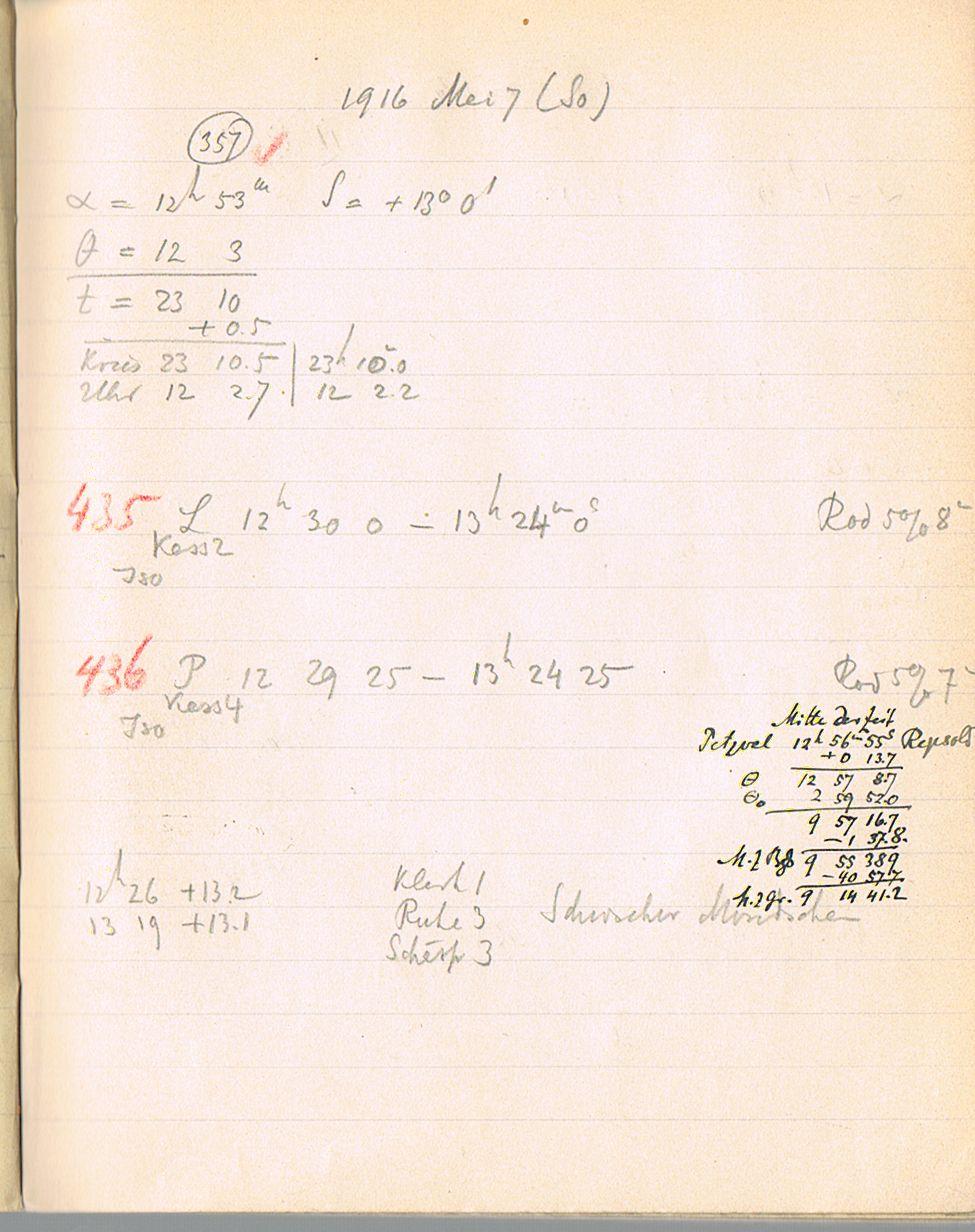 1916 Mai 7 (So)
357 ✓
α = 12h 53m δ = +13° 0'
θ = 12 3
t = 23 10
+ 0.5
Kreis 23 10.5 | 23h 10.0
Uhr 12 2.7 | 12 2.2
435 L 12h 30 0 – 13h 24m 0s Rod 50% 8m
Kass 2
Iso
436 P 12 29 25 – 13h 24 25 Rod 50% 7m
Kass 4
Iso
Mitte der Zeit
Petzval 12h 56m 55s Repsold
+0 13.7
θ 12 57 8.7
θ₀ 2 59 52.0
9 57 16.7
–1 37.8
M.Z. Bg 9 55 38.9
–40 57.7
M.Z. Gr. 9 14 41.2
12h 26 +13.2 Klarh 1
13 19 +13.1 Ruhe 3 Schwacher Mondschein
Schärfe 3